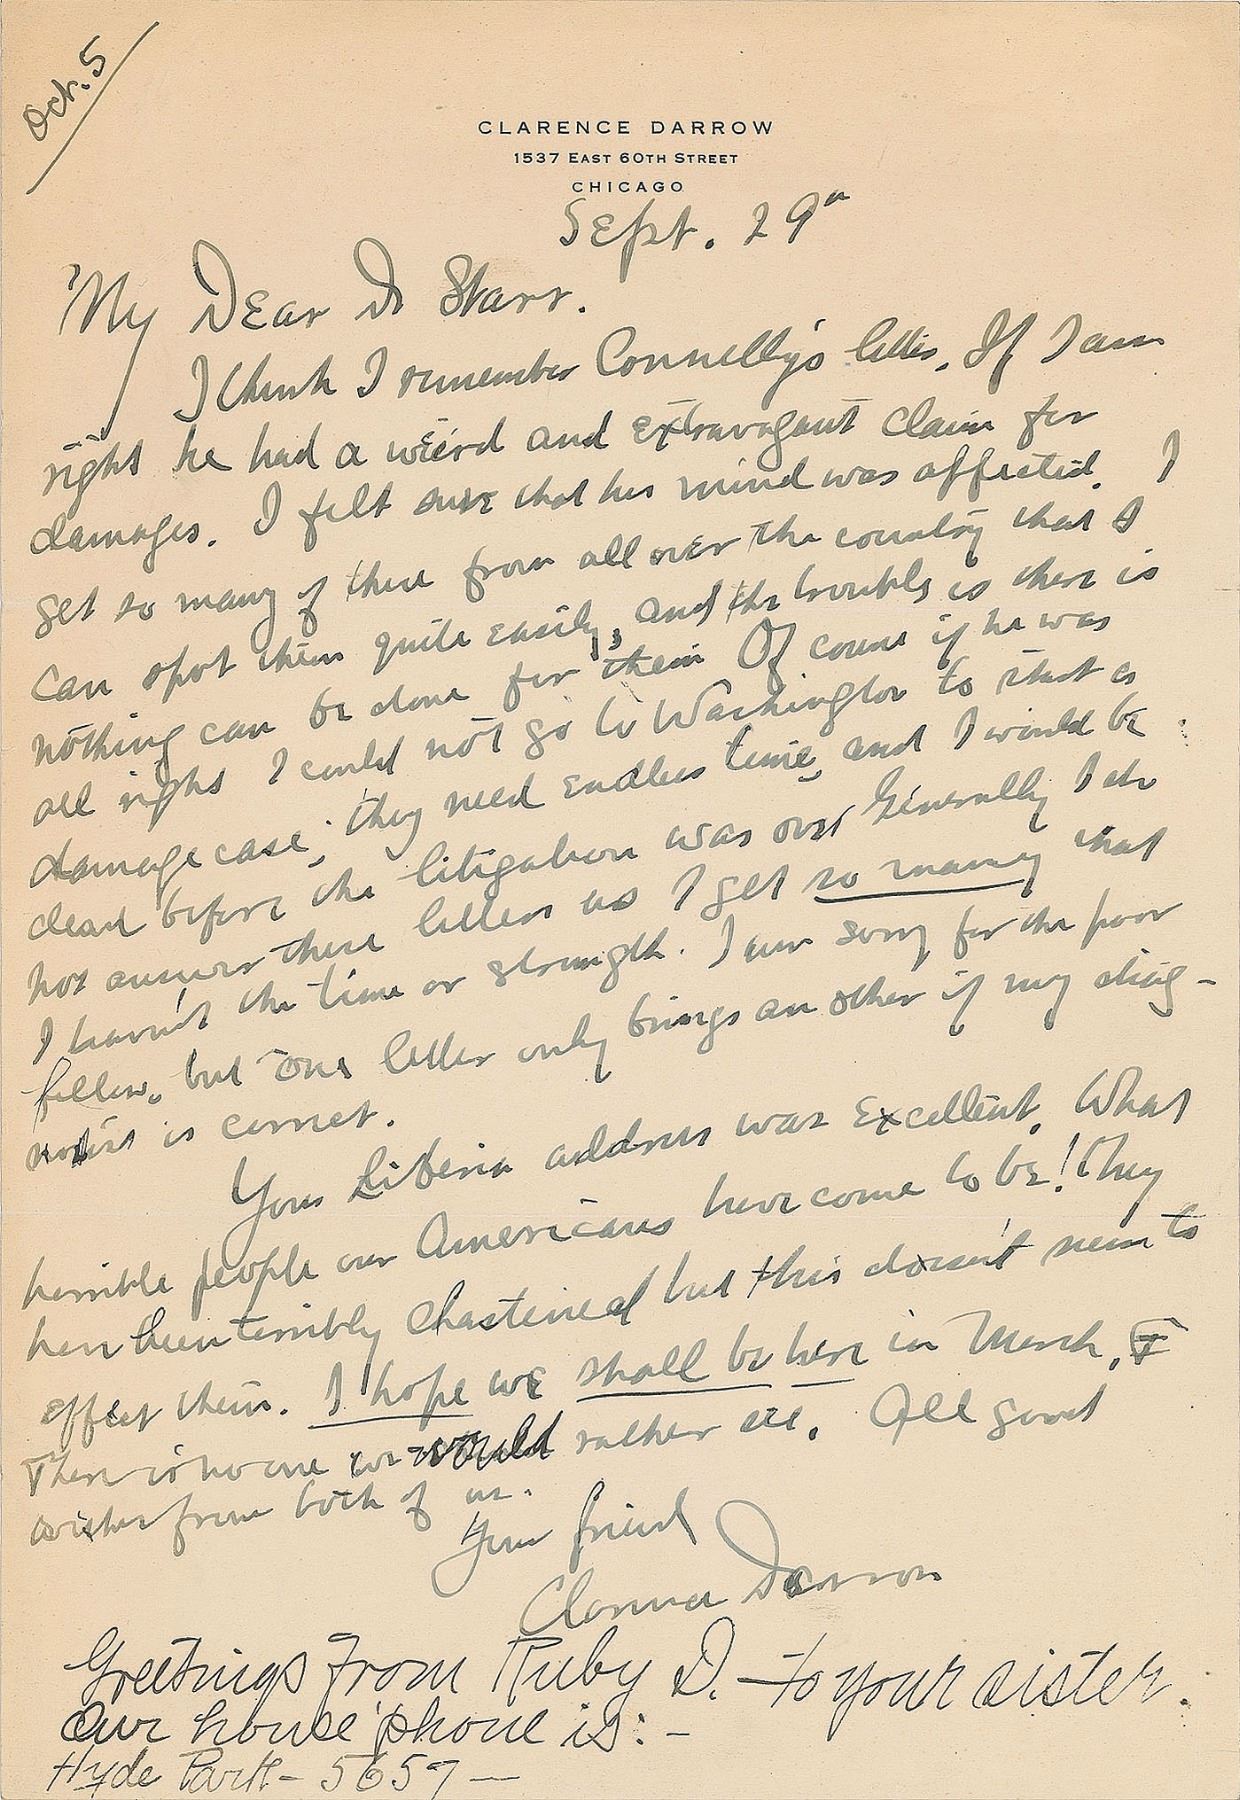 Oct. 5
CLARENCE DARROW
1537 EAST 60TH STREET
CHICAGO
Sept. 29"
My Dear Dr Starr.
I think I remember Connelly's letter. If I am
right he had a weird and extravagant claim for
damages. I felt sure that his mind was affected. I
get so many of these from all over the country that I
can spot them quite easily, and the trouble is there is
nothing can be done for them Of course if he was
all right I could not go to Washington to start a
damage case; they need endless time, and I would be
dead before the litigation was over Generally I do
not answer these letters as I get so many that
I haven't the time or strength. I am sorry for the poor
fellow, but one letter only brings an other if my diag-
nosis is correct.
Your Liberia address was excellent. What
horrible people our Americans have come to be! They
have been terribly chastened but this doesn't seem to
effect them. I hope we shall be here in March.
There is no one we would rather see. All good
wishes from both of us.
Your friend
Clarence Darrow
Greetings from Ruby D. — to your sister.
Our house 'phone is: -
Hyde Park - 5657 —